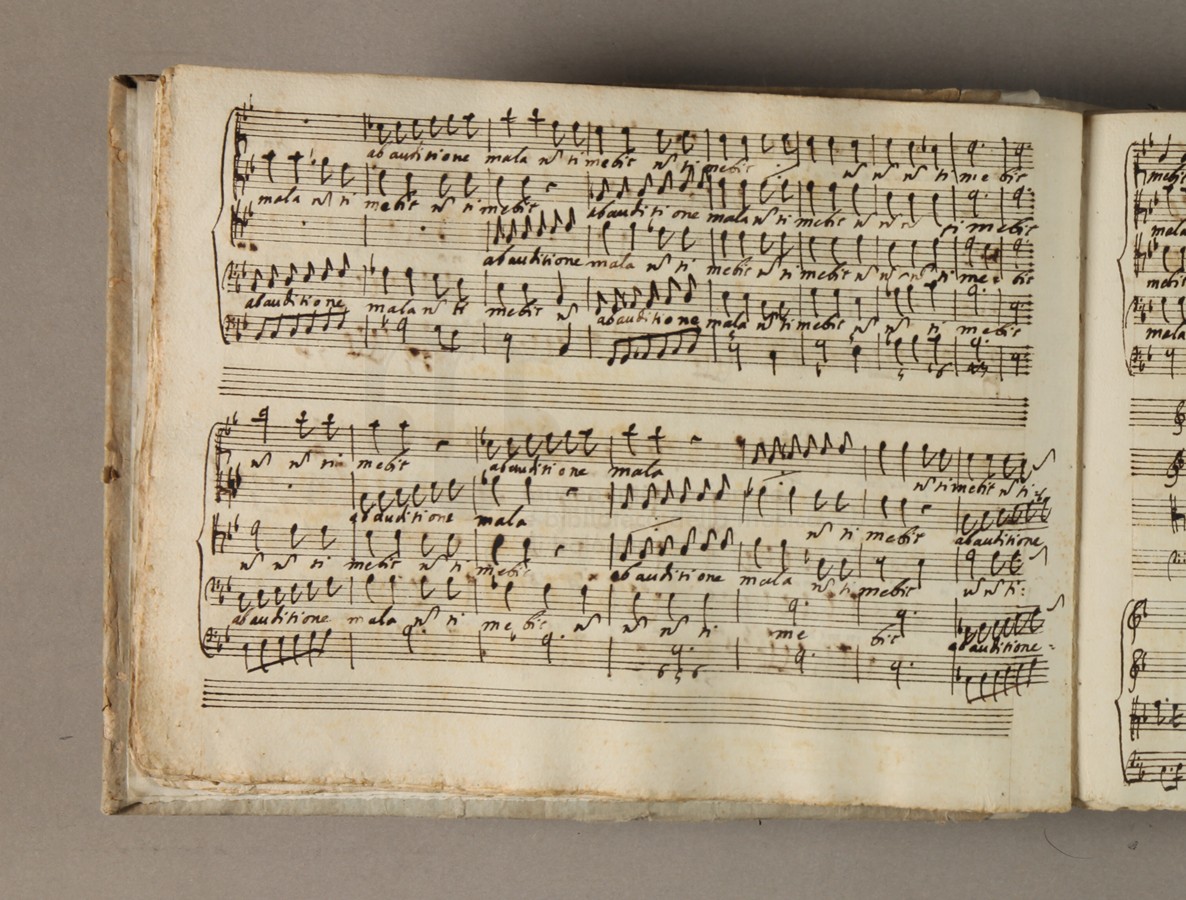 ab auditione mala nõ ti mebit nõ ti mebit nõ nõ nõ ti me bit
mala nõ ti mebit nõ ti mebit ab auditi one mala nõ ti mebit nõ nõ ti mebit
ab auditione mala nõ ti mebit nõ ti mebit nõ nõ nõ ti me bit
ab auditione mala nõ ti mebit nõ ab auditione mala nõ ti mebit nõ nõ ti mebit
nõ nõ ti mebit ab auditione mala nõ ti mebit nõ ti
ab auditione mala nõ ti mebit ab auditione
nõ nõ ti mebit nõ ti mebit ab auditione mala nõ ti mebit nõ nõ ti
ab auditione mala nõ ti me bit nõ nõ nõ ti me bit ab auditione
mebit
mala
mebit
mala